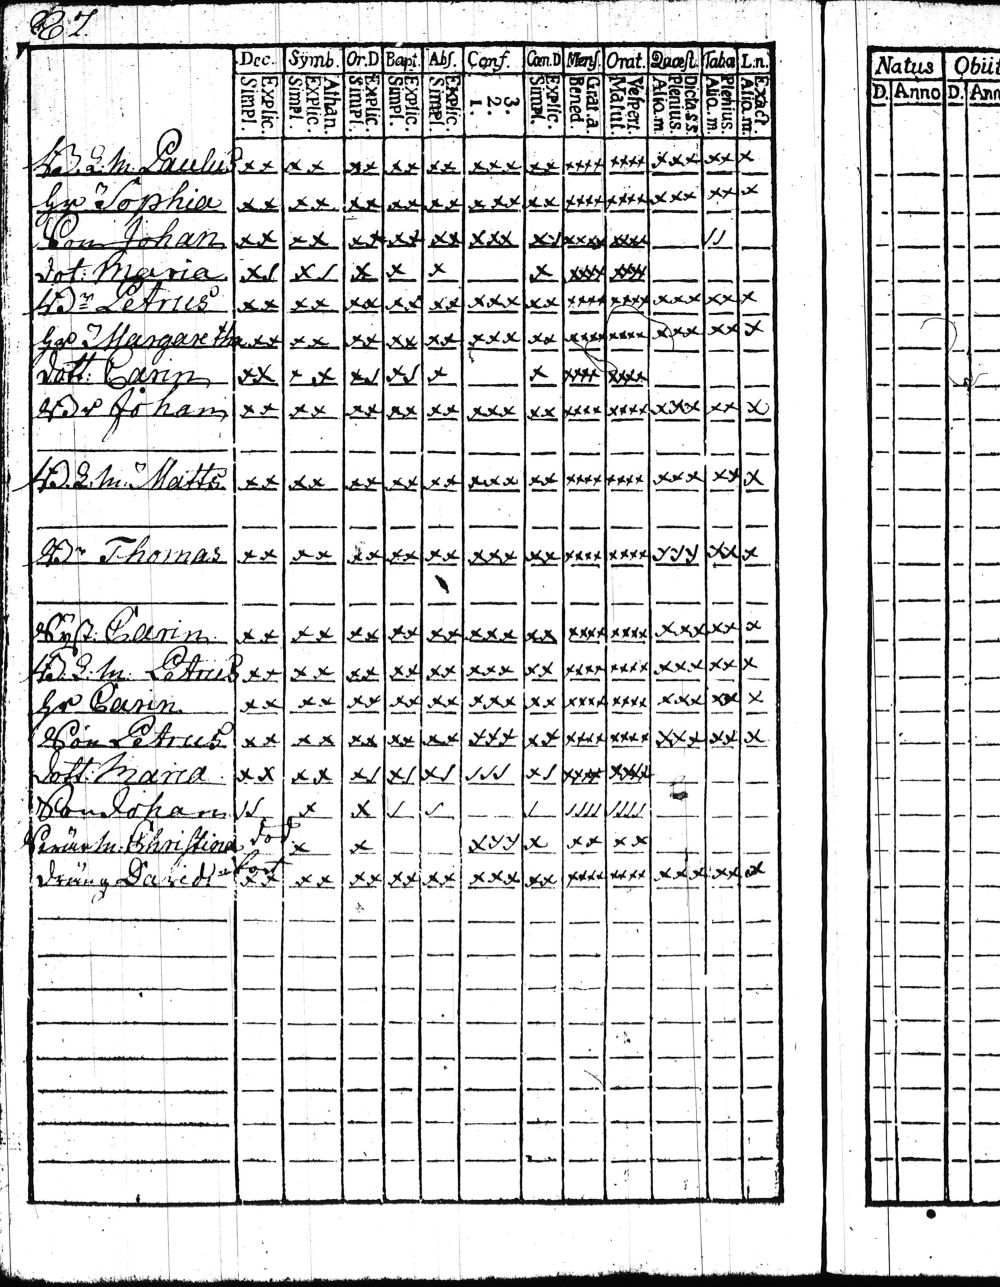 Dec. Symb. Or.D Bapt. Abs. Conf. Cœn.D Mens. Orat. Quæst. Tabæ L.n.
Simpl. Explic. Simpl. Explic. Athan. Simpl. Explic. Simpl. Explic. Simpl. Explic. 1. 2. 3. Simpl. Explic. Bened Grat.a. Matut. Vespert. Alio.m. Plenius. Dicta s.s. Alio.m. Plenius. Alio.m. Exact.
Natus Obiit
D. Anno D. Ann
Paulus xx xx xx xx xx xxx xx xxxx xxxx xxx xx x
Sophia xx xx xx xx xx xxx xx xxxx xxxx xxx xx x
Son Johan xx xx xx xx xx xxx x/ xxxx xxxx //
Dot. Maria x/ x/ x x x x xxxx xxxx
Petrus xx xx xx xx xx xxx xx xxxx xxxx xxx xx x
Margaretha xx xx xx xx xx xxx xx xxxx xxxx xxx xx x
Dott: Carin xx xx x/ x/ x x xxxx xxxx
Johan xx xx xx xx xx xxx xx xxxx xxxx xxx xx x
Matts xx xx xx xx xx xxx xx xxxx xxxx xxx xx x
Thomas xx xx xx xx xx xxx xx xxxx xxxx yyy xx x
Syst: Carin xx xx xx xx xx xxx xx xxxx xxxx xxx xx x
Petrus xx xx xx xx xx xxx xx xxxx xxxx xxx xx x
Carin xx xx xx xx xx xxx xx xxxx xxxx xxx xx x
Son Petrus xx xx xx xx xx xxx xx xxxx xxxx xxx xx x
Dott: Maria xx xx x/ x/ x/ /// x/ xxxx xxxx
Son Johan // x x / / / //// ////
Christina död x x xyy x xx xx
Dräng David bort xx xx xx xx xx xxx xx xxxx xxxx xxx xx x